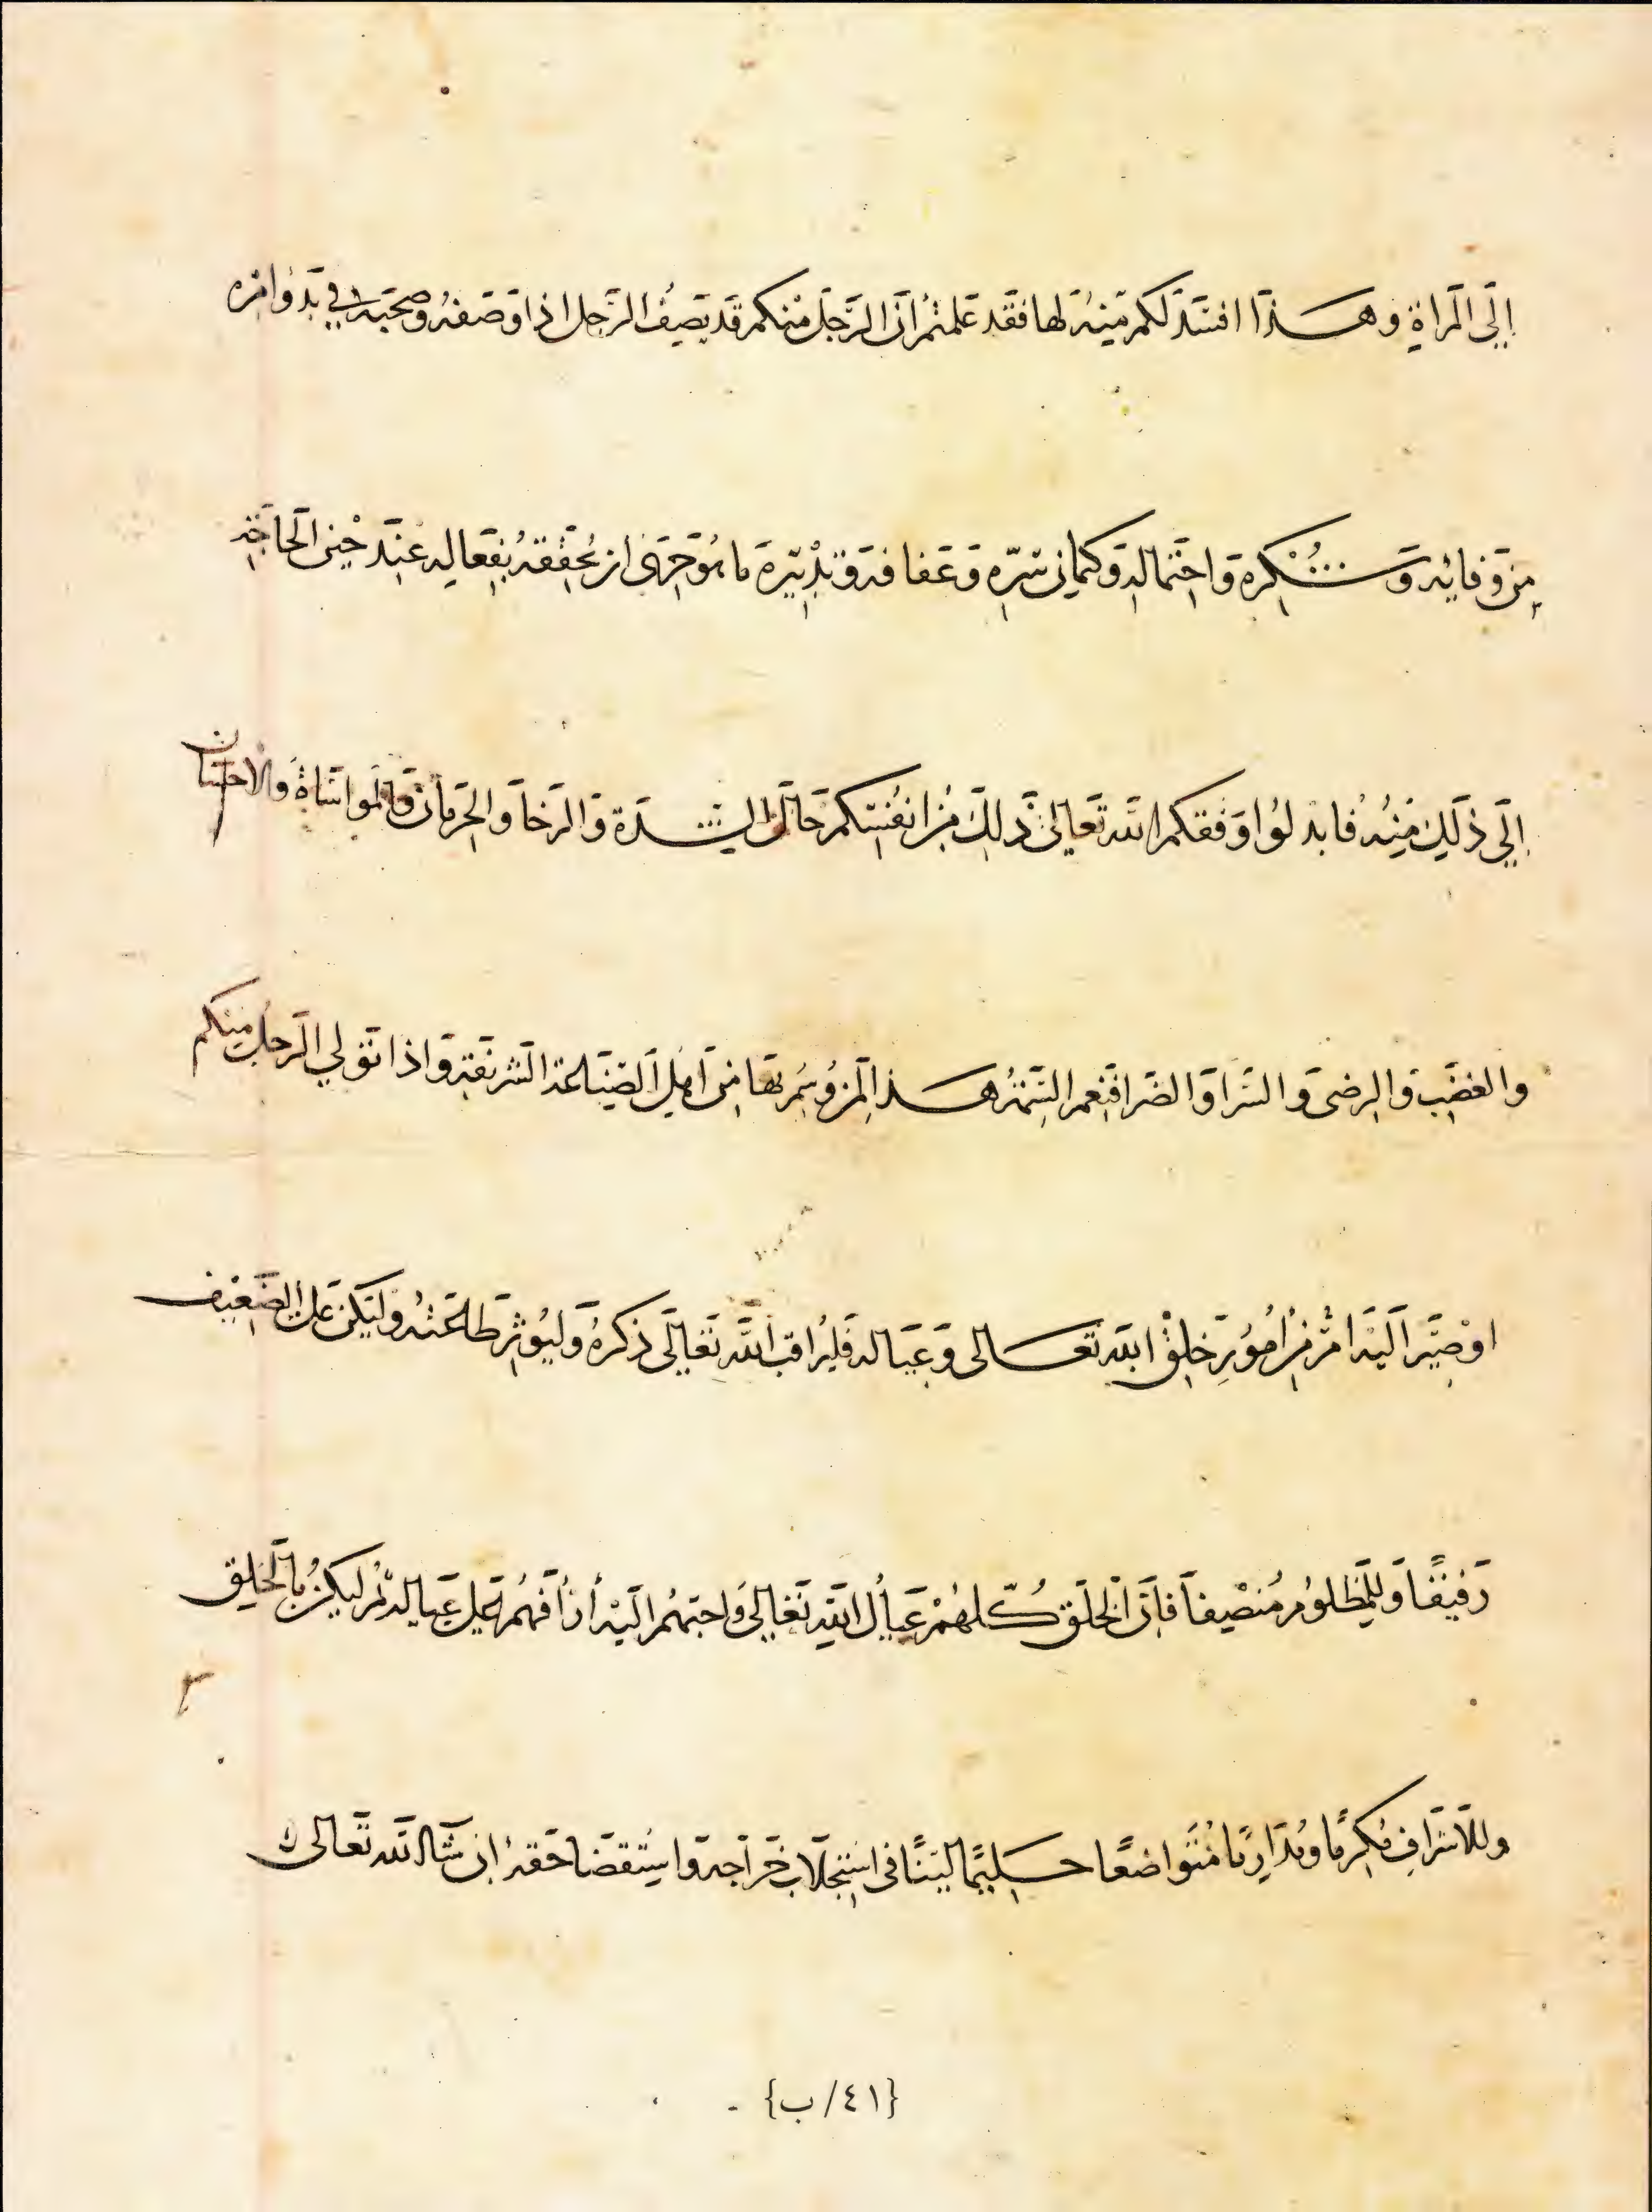 إلى المرأة وهذا افسد لكم منه لها فقد علمتم ان الرجل منكم قد يصف الرجل اذا وصفه وصحبه في بدو امره
من وفائه وشكره واحتماله وكتمان سره وعفافه وتدبيره ما هو حرى ان يحققه بفعاله عند حين الحاجة
إلى ذلك منه فابدلوا وفقكم الله تعالى ذلك من انفسكم حالة الشدة والرخا والحرمان والمواساة والاحسان
والغضب والرضى والسرا والضرا فنعم السمة هذه لمن وسم بها من اهل الصناعة الشريفة واذا تولي الرجل منكم
او صير اليه امر من امور خلق الله تعالى وعياله فليراقب الله تعالى ذكره وليوثر طاعته وليكن على الضعيف
رفيقا وللمظلوم منصفا فان الخلق كلهم عيال الله تعالى واحبهم اليه أرأفهم على عياله ثم ليكن بالخلق
وللاشراف مكرما ومداريا متواضعا حليما لينا في استجلاب خراجه واستقضا حقه ان شا الله تعالى
{٤١/ب}